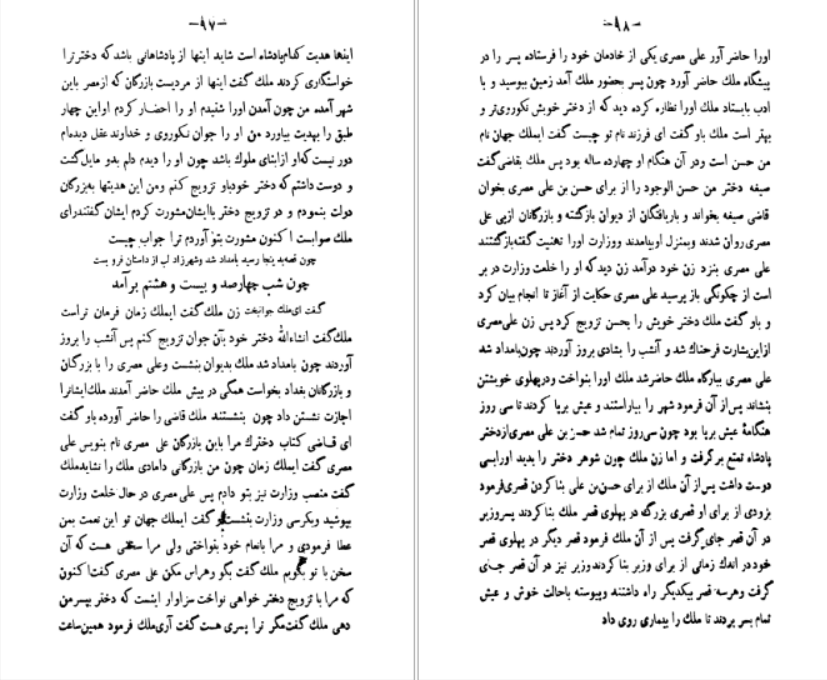 -۹۷-
اینها هدیت کدام پادشاه است شاید اینها از پادشاهانی باشد که دختر ترا
خواستگاری کردند ملك گفت اینها از مردیست بازرگان که از مصر باین
شهر آمده من چون آمدن اورا شنیدم او را احضار کردم او این چهار
طبق را بهدیت بیاورد من او را جوان نکوروی و خداوند عقل دیده‌ام
دور نیست که او از ابنای ملوك باشد چون او را دیدم دلم بدو مایل گشت
و دوست داشتم که دختر خود باو تزویج کنم و من این هدیتها به بزرگان
دولت بنمودم و در تزویج دختر با ایشان مشورت کردم ایشان گفتند رای
ملك صوابست اکنون مشورت بتو آوردم ترا جواب چیست
چون قصه بدینجا رسید بامداد شد و شهرزاد لب از داستان فرو بست
چون شب چهارصد و بیست و هشتم برآمد
گفت ای ملك جوانبخت زن ملك گفت ایملك زمان فرمان تراست
ملك گفت انشاءالله دختر خود بآن جوان تزویج کنم پس آنشب را بروز
آوردند چون بامداد شد ملك بدیوان بنشست و علی مصری را با بزرگان
و بازرگانان بغداد بخواست همگی در پیش ملك حاضر آمدند ملك ایشانرا
اجازت نشستن داد چون بنشستند ملك قاضی را حاضر آورده باو گفت
ای قاضی کتاب دخترك مرا باین بازرگان علی مصری نام بنویس علی
مصری گفت ایملك زمان چون من بازرگانی دامادی ملك را نشاید ملك
گفت منصب وزارت نیز بتو دادم پس علی مصری در حال خلعت وزارت
بپوشید و بکرسی وزارت بنشست و گفت ایملك جهان تو این نعمت بمن
عطا فرمودی و مرا بانعام خود بنواختی ولی مرا سخنی هست که آن
سخن با تو بگویم ملك گفت بگو و هراس مکن علی مصری گفت اکنون
که مرا با تزویج دختر خواهی نواخت سزاوار اینست که دختر بپسر من
دهی ملك گفت مگر ترا پسری هست گفت آری ملك فرمود همین ساعت
-۹۸-
اورا حاضر آور علی مصری یکی از خادمان خود را فرستاده پسر را در
پیشگاه ملك حاضر آورد چون پسر بحضور ملك آمد زمین ببوسید و با
ادب بایستاد ملك اورا نظاره کرده دید که از دختر خویش نکوروی‌تر و
بهتر است ملك باو گفت ای فرزند نام تو چیست گفت ایملك جهان نام
من حسن است و در آن هنگام او چهارده ساله بود پس ملك بقاضی گفت
صیغه دختر من حسن الوجود را از برای حسن بن علی مصری بخوان
قاضی صیغه بخواند و باریافتگان از دیوان بازگشته و بازرگانان از پی علی
مصری روان شدند و بمنزل او بیامدند و وزارت اورا تهنیت گفته بازگشتند
علی مصری بنزد زن خود درآمد زن دید که او را خلعت وزارت در بر
است از چگونگی باز پرسید علی مصری حکایت از آغاز تا انجام بیان کرد
و باو گفت ملك دختر خویش را بحسن تزویج کرد پس زن علی مصری
از این بشارت فرحناك شد و آنشب را بشادی بروز آوردند چون بامداد شد
علی مصری ببارگاه ملك حاضر شد ملك اورا بنواخت و در پهلوی خویشتن
بنشاند پس از آن فرمود شهر را بیاراستند و عیش برپا کردند تا سی روز
هنگامهٔ عیش برپا بود چون سی روز تمام شد حسن بن علی مصری از دختر
پادشاه تمتع برگرفت و اما زن ملك چون شوهر دختر را بدید اورا بسی
دوست داشت پس از آن ملك از برای حسن بن علی بنا کردن قصری فرمود
بزودی از برای او قصری بزرگ در پهلوی قصر ملك بنا کردند پسر وزیر
در آن قصر جای گرفت پس از آن ملك فرمود قصر دیگر در پهلوی قصر
خود در اندك زمانی از برای وزیر بنا کردند وزیر نیز در آن قصر جای
گرفت و هر سه قصر بیکدیگر راه داشتند و پیوسته با حالت خوش و عیش
تمام بسر بردند تا ملك را بیماری روی داد